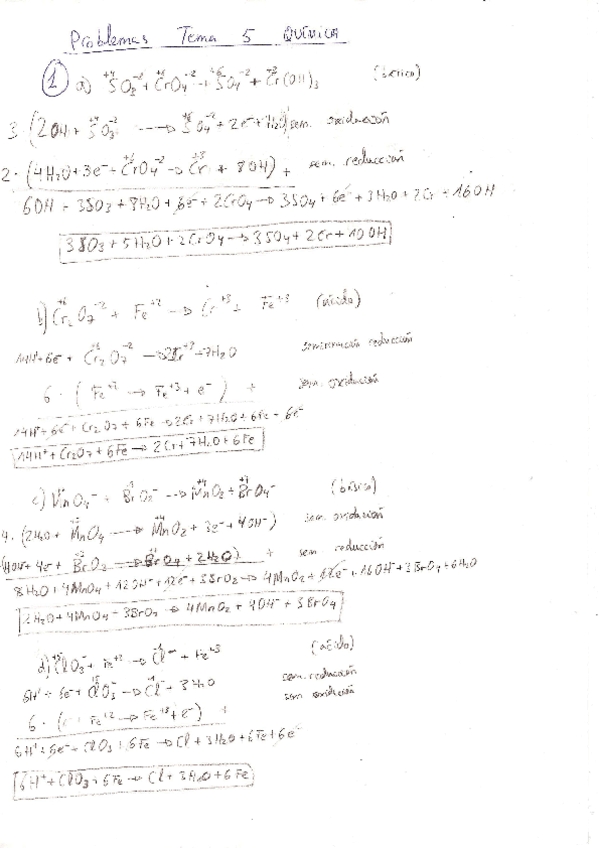 Problemas Tema 5 QUÍMICA
① a) SO₃⁻² + CrO₄⁻² → SO₄⁻² + Cr(OH)₃ (básico)
3 · (2OH + SO₃⁻² → SO₄⁻² + 2e⁻ + H₂O) sem. oxidación
2 · (4H₂O + 3e⁻ + CrO₄⁻² → Cr⁺³ + 8OH) + sem. reducción
6OH + 3SO₃ + 8H₂O + 6e⁻ + 2CrO₄ → 3SO₄ + 6e⁻ + 3H₂O + 2Cr + 16OH
3SO₃ + 5H₂O + 2CrO₄ → 3SO₄ + 2Cr + 10OH
b) Cr₂O₇⁻² + Fe⁺² → Cr⁺³ + Fe⁺³ (ácido)
14H⁺ + 6e⁻ + Cr₂O₇⁻² → 2Cr⁺³ + 7H₂O semirreacción reducción
6 · (Fe⁺² → Fe⁺³ + e⁻) + sem. oxidación
14H⁺ + 6e⁻ + Cr₂O₇ + 6Fe → 2Cr + 7H₂O + 6Fe + 6e⁻
14H⁺ + Cr₂O₇ + 6Fe → 2Cr + 7H₂O + 6Fe
c) MnO₄⁻ + BrO₃⁻ → MnO₂ + BrO₄⁻ (básico)
4 · (2H₂O + MnO₄ → MnO₂ + 3e⁻ + 4OH⁻) sem. oxidación
(4OH⁻ + 4e⁻ + BrO₂ → BrO₄ + 2H₂O) + sem. reducción
8H₂O + 4MnO₄ + 12OH⁻ + 12e⁻ + 3BrO₂ → 4MnO₂ + 12e⁻ + 16OH⁻ + 3BrO₄ + 6H₂O
2H₂O + 4MnO₄ + 3BrO₂ → 4MnO₂ + 4OH⁻ + 3BrO₄
d) ClO₃⁻ + Fe⁺² → Cl⁻ + Fe⁺³ (ácido)
6H⁺ + 6e⁻ + ClO₃⁻ → Cl⁻ + 3H₂O sem. reducción
6 · (Fe⁺² → Fe⁺³ + e⁻) + sem. oxidación
6H⁺ + 6e⁻ + ClO₃ + 6Fe → Cl + 3H₂O + 6Fe + 6e⁻
6H⁺ + ClO₃ + 6Fe → Cl + 3H₂O + 6Fe